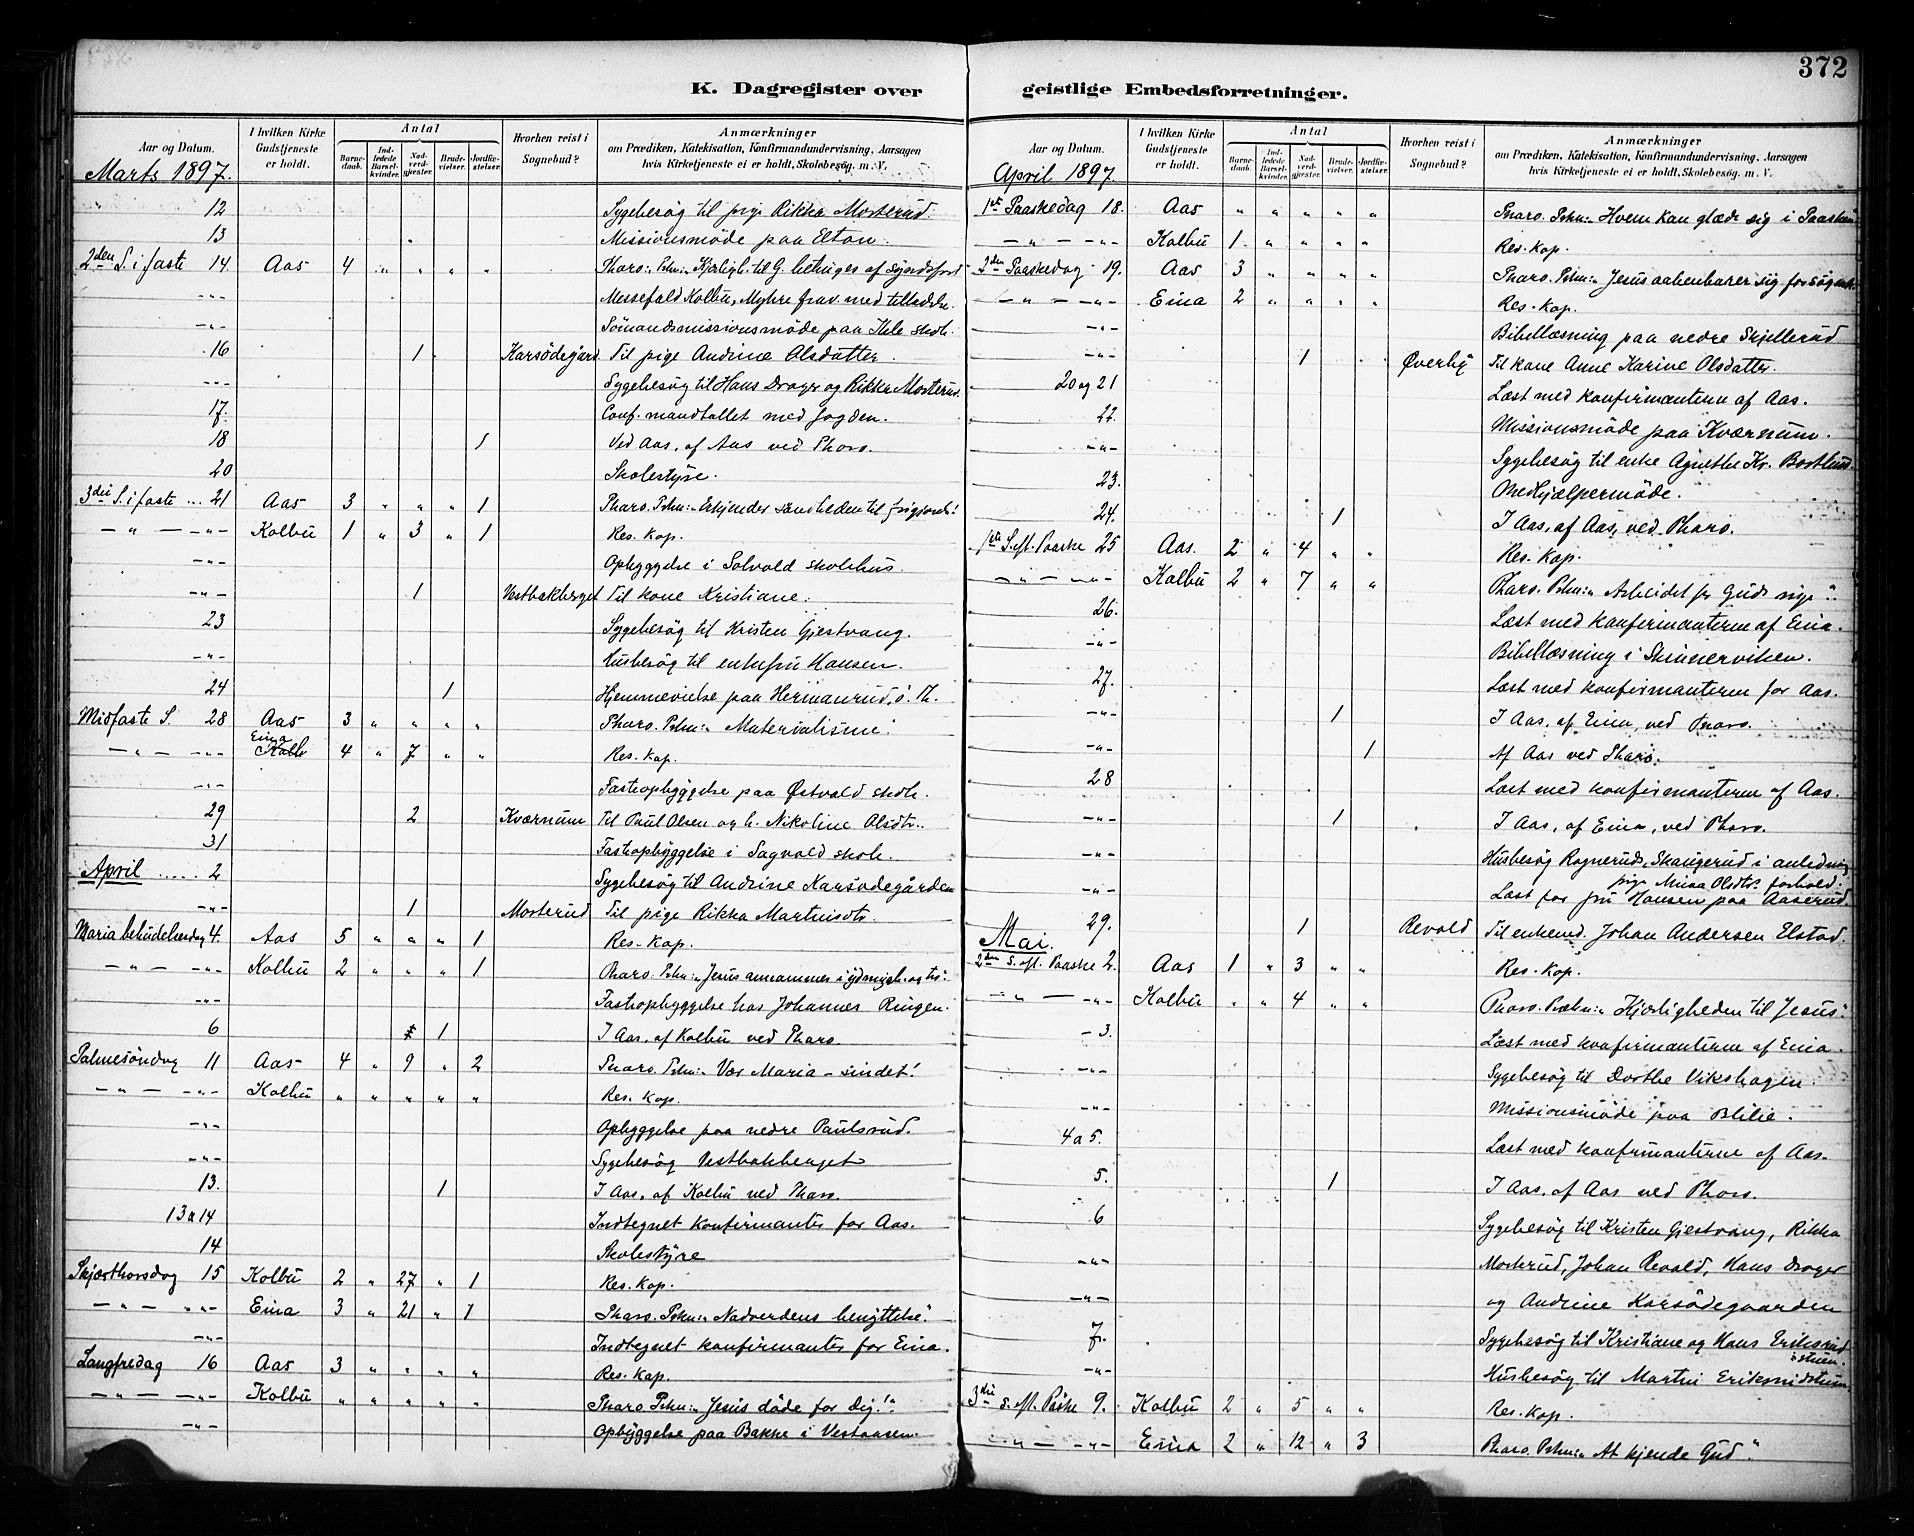 372
K. Dagregister over
geistlige Embedsforretninger.
Aar og Datum.
I hvilken Kirke Gudstjeneste er holdt.
Antal
Barnedaab.
Indledede Barselkvinder.
Nadverdgjester.
Brudevielser.
Jordfæstelser.
Hvorhen reist i Sognebud?
Anmærkninger
om Prædiken, Katekisation, Konfirmandundervisning, Aarsagen
hvis Kirketjeneste ei er holdt, Skolebesøg. m. V.
Marts 1897.
12 Sygebesøg til pige Rikka Mosterud.
13 Missionsmøde paa Elton.
2den S. i faste 14. Aas 4 " " " " Pharo: Pchn:
-"- Messefald Kolbu, Myhre
-"- Sømandsmissionsmøde paa skole.
16 1 Karsødegård Til pige Andrine Olsdatter.
-"- Sygebesøg til Hans Drager og Rikka Mosterud.
17. Conf. mandtallet med fogden.
18 1 Ved Aas, af Aas ved Pharo.
20 Skolestyre.
3die S. i faste ... 21 Aas 3 " " " 1 Pharo. Pchn: Erkjender sandheden til
-"- -"- Kolbu 1 " 3 " 1 Res. Kap.
-"- Opbyggelse i Solvold skolehus.
-"- 1 Vestbakberget Til kone Kristiane.
23 Sygebesøg til Kristen Gjestvang.
-"- Husbesøg til enkefru Hansen.
24 1 Hjemmevielse paa Hermanrud, ö. Th.
Midfaste S. 28 Aas 3 " " " " Pharo. Pchn: Materialisme!
-"- -"- Eina Kolb 4 " 7 " " Res. Kap.
-"- Fasteopbyggelse paa Østvold skole.
29 2 Kværnum Til Paul Olsen og h. Nikoline Olsdtr.
31 Fasteopbyggelse i Sagvold skole.
April ..... 2 Sygebesøg til Andrine Karsødegården
-"- 1 Mosterud Til pige Rikka Martinsdtr.
Maria bebudelsesdag 4. Aas 5 " " " 1 Res. Kap.
-"- -"- Kolbu 2 " " " 1 Pharo. Pchn: Jesus annammes i ydmygh. og tro.
-"- Fasteopbyggelse hos Johannes Ringen.
6 1 I Aas, af Kolbu ved Pharo.
Palmesøndag 11 Aas 4 " 9 " 2 Pharo. Pchn: Vær Maria-sindet!
-"- -"- Kolbu " " " " " Res. Kap.
-"- Opbyggelse paa nedre Paulsrud.
-"- Sygebesøg Vestbakberget
13. 1 I Aas, af Kolbu ved Pharo.
13 a 14 Indtegnet konfirmanter for Aas.
14 Skolestyre
Skjærthorsdag 15 Kolbu 2 " 27 " 1 Res. Kap.
-"- -"- Eina 3 " 21 " 1 Pharo. Pchn: Nadverdens benyttelse."
-"- Indtegnet konfirmanter for Eina.
Langfredag 16 Aas 3 " " " " Res. Kap.
-"- -"- Kolbu " " " " " Pharo Pchn: Jesus døde for Dig!"
-"- Opbyggelse paa Bakke i Vestaasen.
Aar og Datum.
I hvilken Kirke Gudstjeneste er holdt.
Antal
Barnedaab.
Indledede Barselkvinder.
Nadverdgjester.
Brudevielser.
Jordfæstelser.
Hvorhen reist i Sognebud?
Anmærkninger
om Prædiken, Katekisation, Konfirmandundervisning, Aarsagen
hvis Kirketjeneste ei er holdt, Skolebesøg. m. V.
April 1897.
1ste Paaskedag 18. Aas " " " " " Pharo. Pchn: Hvem kan glæde sig i Paasken
-"- -"- Kolbu 1 " " " " Res. Kap.
2den Paaskedag 19. Aas 3 " " " " Pharo. Pchn: Jesus aabenbarer sig for
-"- -"- Eina 2 " " " " Res. Kap.
-"- Bibellæsning paa nedre Skjellerud
-"- 1 Øverby Til kone Anne Karine Olsdatter.
20 og 21 Læst med konfirmanterne af Aas.
22. Missionsmøde paa Kværnum.
-"- Sygebesøg til enke Agnethe Kr.
23. Medhjælpermøde.
24. 1 I Aas, af Aas, ved Pharo.
1ste S. eft. Paaske 25 Aas. 2 " 4 " " Res. Kap.
-"- -"- Kolbu 2 " 7 " " Pharo. Pchn: Arbeidet for Guds rige".
26. Læst med konfirmanterne af Eina.
-"- Bibellæsning i Skinnerviken.
27. Læst med konfirmanterne for Aas.
-"- 1 I Aas, af Eina, ved Pharo.
-"- 1 Af Aas ved Pharo.
28 Læst med konfirmanterne af Aas.
-"- 1 I Aas, af Eina, ved Pharo.
-"- Husbesøg Rognerud, Skaugerud i anledning
pige Mina Olsdtrs forhold.
-"- Læst for fru Hansen paa Aaserud.
29. 1 Revold Til enkemd. Johan Andersen Elstad.
Mai.
2den S. eft. Paaske 2. Aas 1 " 3 " " Res. Kap.
-"- -"- Kolbu " " 4 " " Pharo. Præhn: Kjærligheden til Jesus".
- 3. Læst med konfirmanterne af Eina.
-"- Sygebesøg til Dorthe Vikshagen
-"- Missionsmøde paa Blilie.
4 a 5. Læst med konfirmanterne af Aas.
5. 1 I Aas, af Aas ved Pharo.
6 Sygebesøg til Kristen Gjestvang, Rikka
-"- Mosterud, Johan Revold, Hans Drager
-"- og Andrine Karsødegaarden
7. Sygebesøg til Kristiane og Hans Eriksrud
stuen.
-"- Husbesøg til Martin Eriksrudstuen.
3die S. eft. Påske 9. Kolbu 2 " 5 " " Res. Kap.
-"- -"- Eina 2 " 12 " 3 Pharo. Pchn: At kjende Gud"